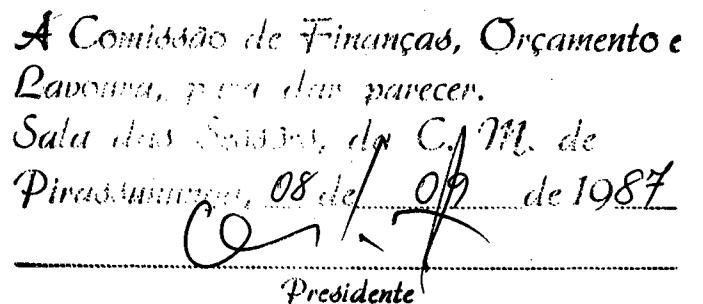 A Comissão de Finanças, Orçamento e
Lavoura, para dar parecer.
Sala das Sessões, da C. M. de
Pirassununga, 08 de 09 de 1987
Presidente